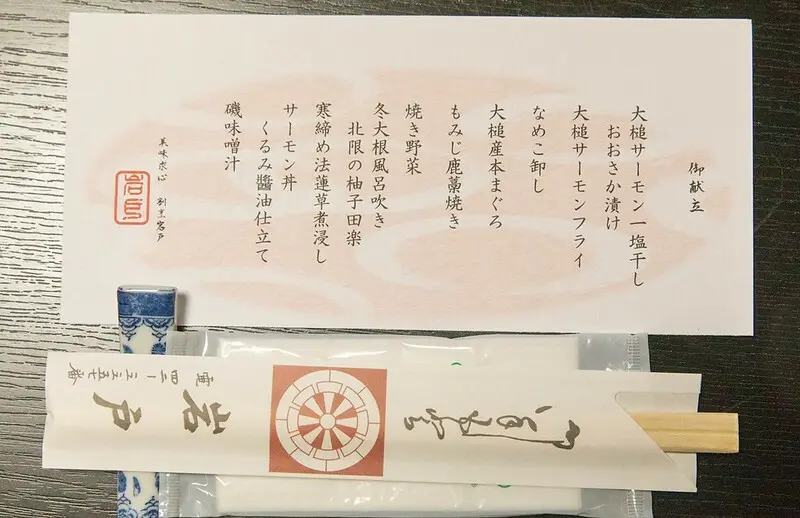 御献立
大槌サーモン一塩干し
おおさか漬け
大槌サーモンフライ
なめこ卸し
大槌産本まぐろ
もみじ鹿藁焼き
焼き野菜
冬大根風呂吹き
北限の柚子田楽
寒締め法蓮草煮浸し
サーモン丼
くるみ醬油仕立て
磯味噌汁
美味求心 割烹岩戸
岩戸
岩戸
電四二-二三五七番